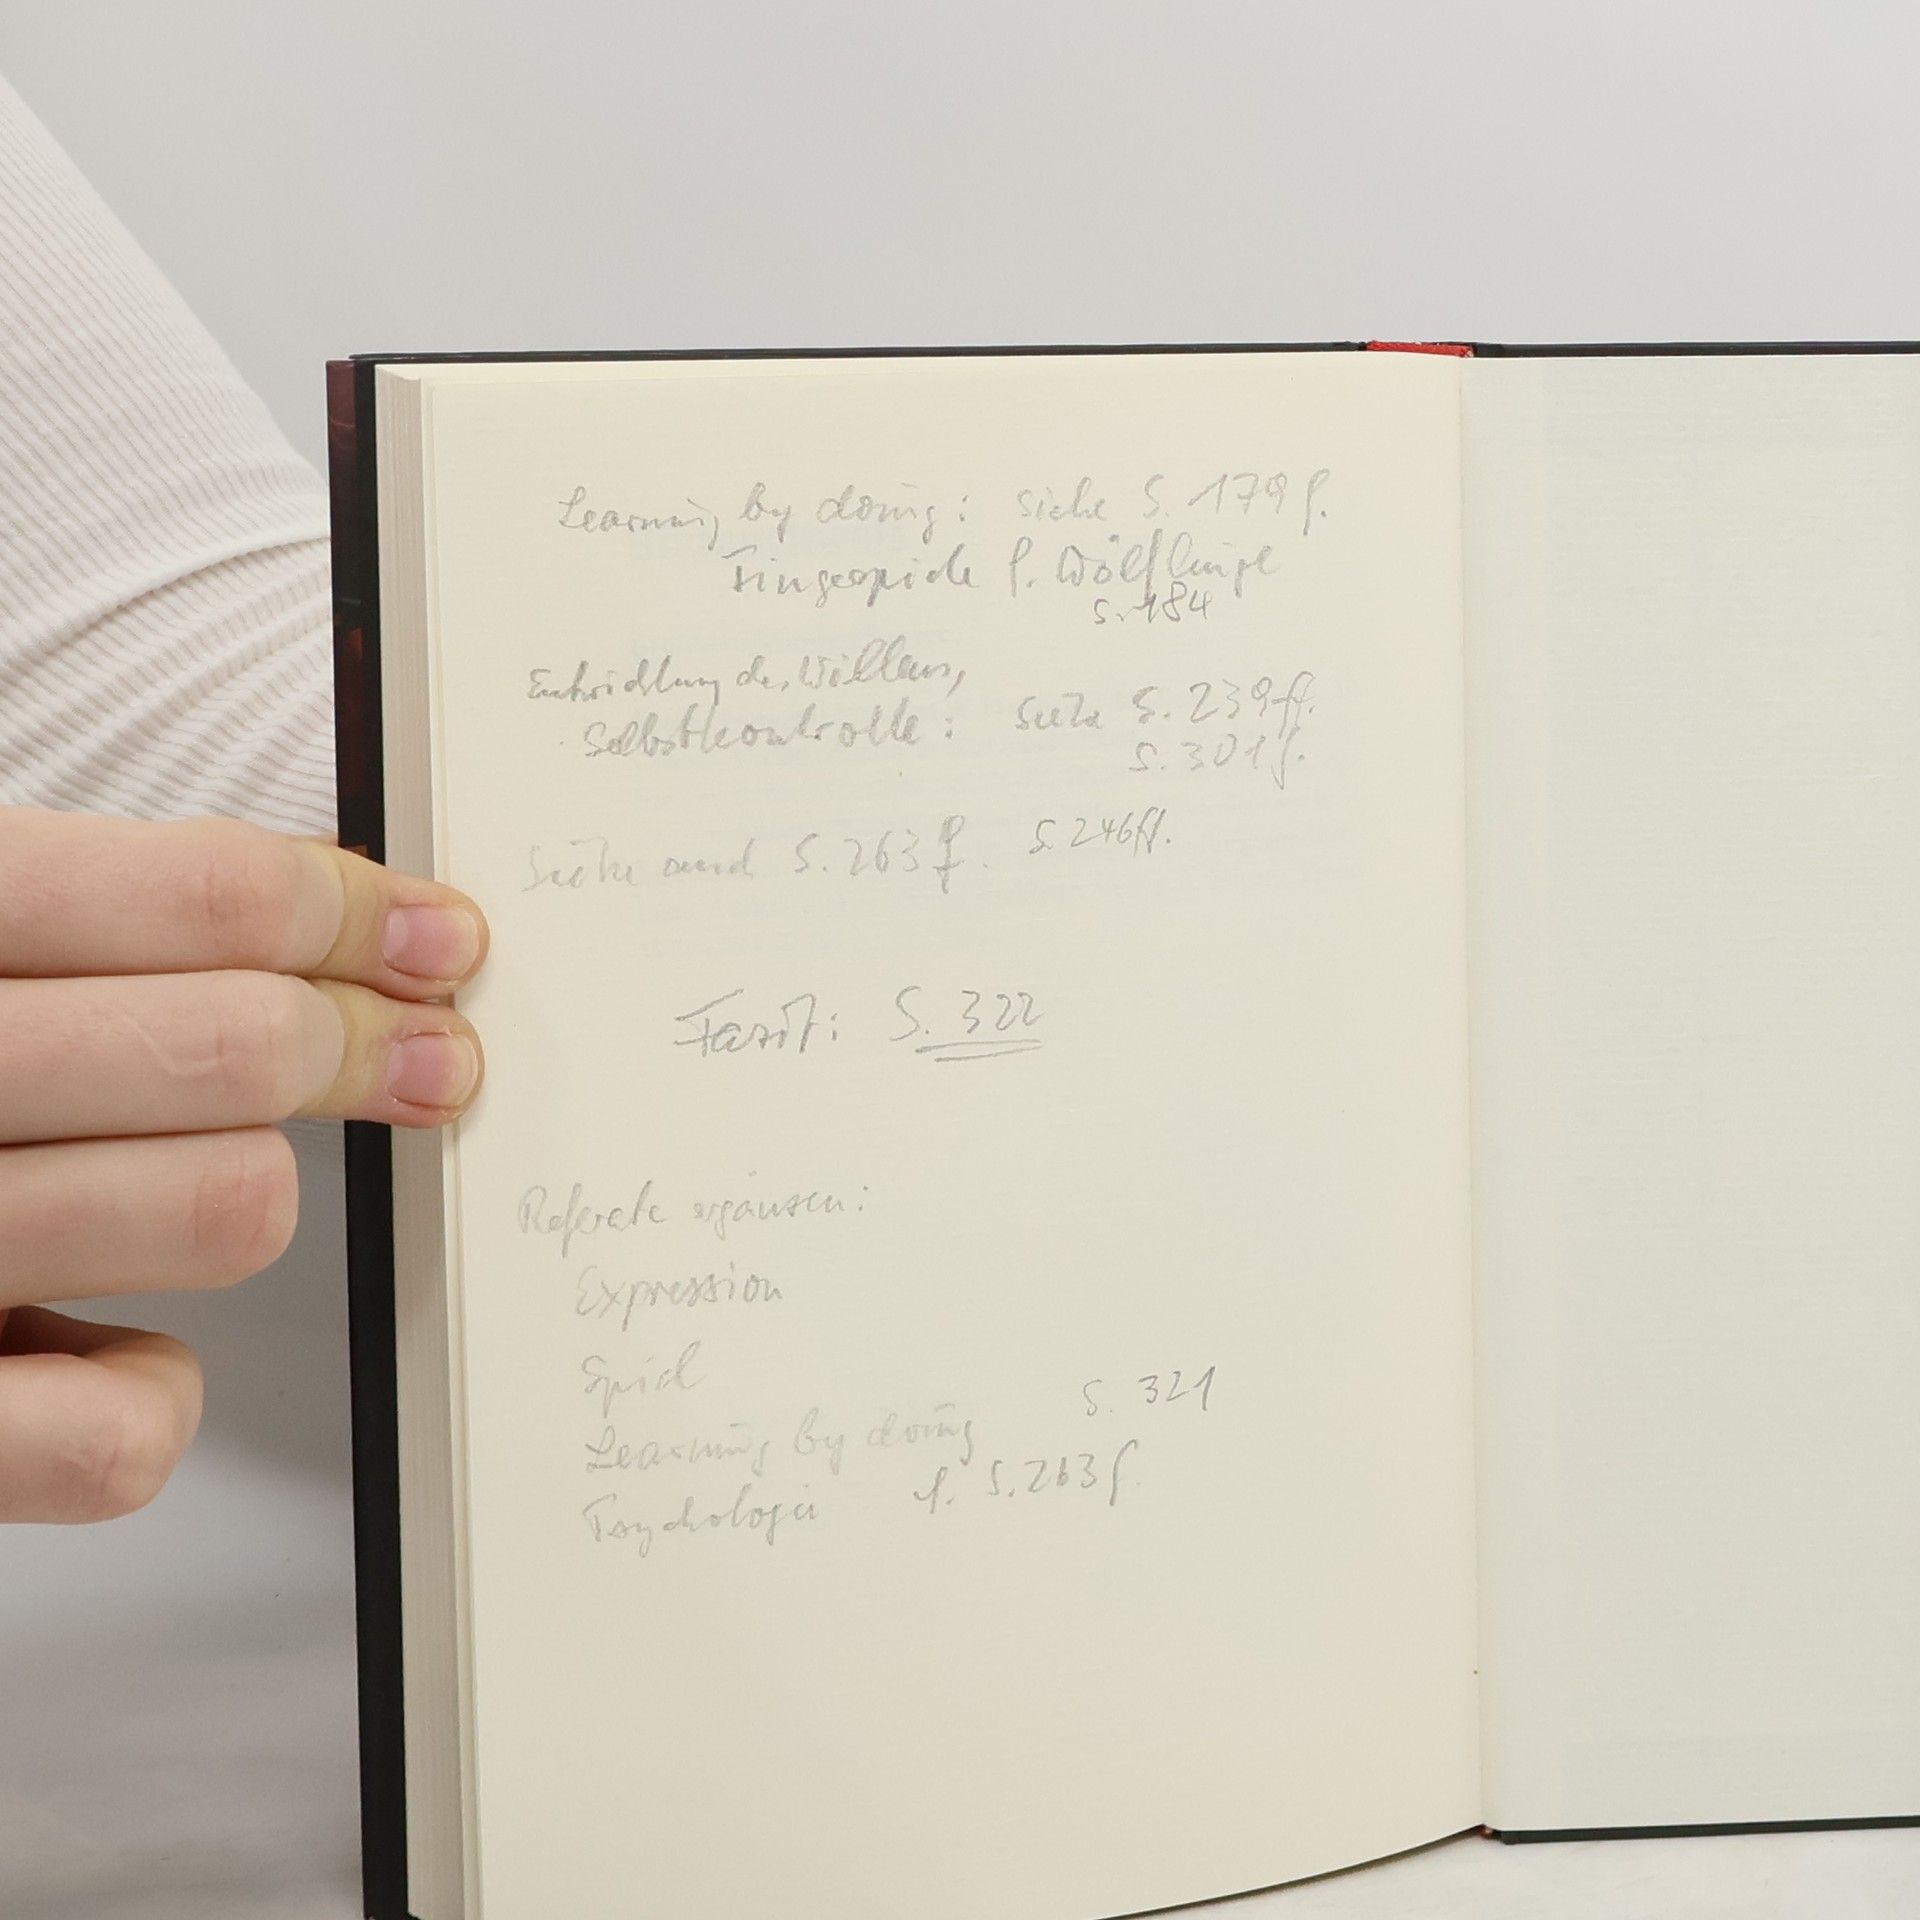 Learning by doing: siehe S. 179 f.
Fingerspiele f. Wölflinge
S. 184
Entwicklung des Willens,
Selbstkontrolle: siehe S. 239ff.
S. 301f.
Siehe auch S. 263 f. S. 246ff.
Fazit: S. 322
Referate ergänzen:
Expression
Spiel
Learning by doing S. 321
Psychologie S. 263 f.